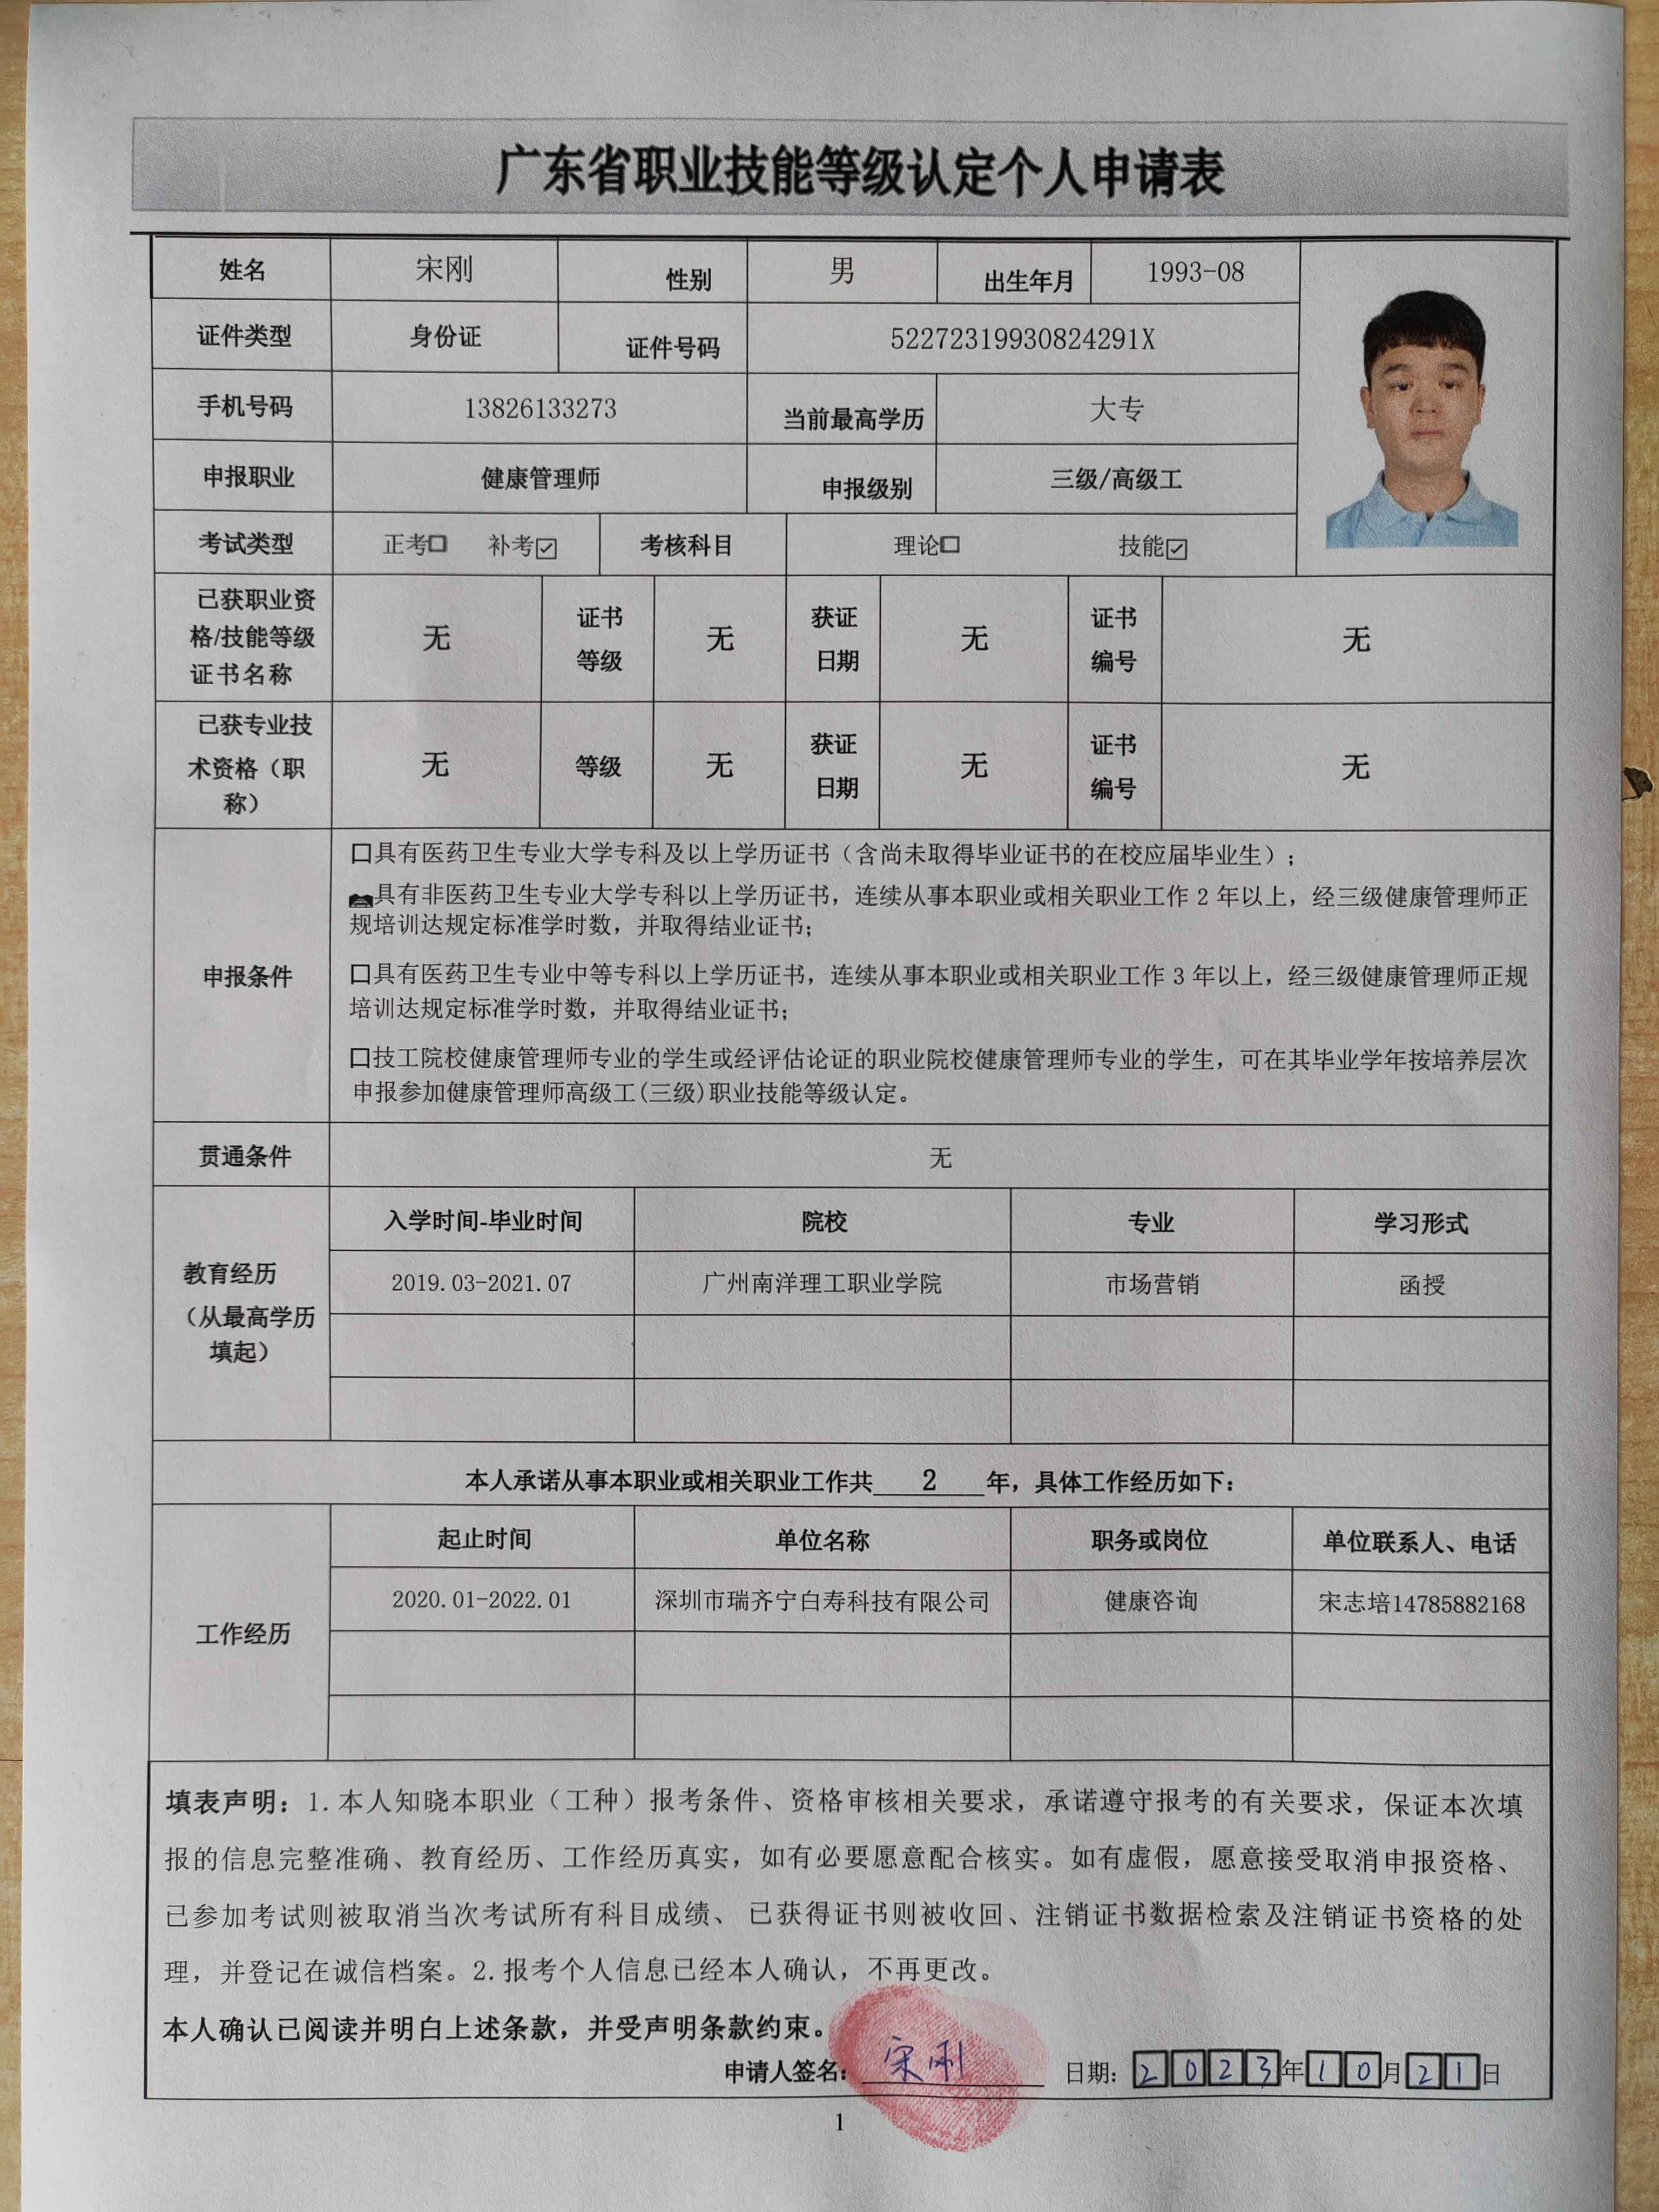 广东省职业技能等级认定个人申请表
姓名 宋刚 性别 男 出生年月 1993-08
证件类型 身份证 证件号码 52272319930824291X
手机号码 13826133273 当前最高学历 大专
申报职业 健康管理师 申报级别 三级/高级工
考试类型 正考☐ 补考☑ 考核科目 理论☐ 技能☑
已获职业资
格/技能等级
证书名称
无
证书
等级
无
获证
日期
无
证书
编号
无
已获专业技
术资格（职
称）
无
等级
无
获证
日期
无
证书
编号
无
申报条件
☐具有医药卫生专业大学专科及以上学历证书（含尚未取得毕业证书的在校应届毕业生）；
具有非医药卫生专业大学专科以上学历证书，连续从事本职业或相关职业工作 2 年以上，经三级健康管理师正
规培训达规定标准学时数，并取得结业证书；
☐具有医药卫生专业中等专科以上学历证书，连续从事本职业或相关职业工作 3 年以上，经三级健康管理师正规
培训达规定标准学时数，并取得结业证书；
☐技工院校健康管理师专业的学生或经评估论证的职业院校健康管理师专业的学生，可在其毕业学年按培养层次
申报参加健康管理师高级工(三级)职业技能等级认定。
贯通条件 无
教育经历
（从最高学历
填起）
入学时间-毕业时间 院校 专业 学习形式
2019.03-2021.07 广州南洋理工职业学院 市场营销 函授
本人承诺从事本职业或相关职业工作共 2 年，具体工作经历如下：
工作经历
起止时间 单位名称 职务或岗位 单位联系人、电话
2020.01-2022.01 深圳市瑞齐宁白寿科技有限公司 健康咨询 宋志培14785882168
填表声明：1.本人知晓本职业（工种）报考条件、资格审核相关要求，承诺遵守报考的有关要求，保证本次填
报的信息完整准确、教育经历、工作经历真实，如有必要愿意配合核实。如有虚假，愿意接受取消申报资格、
已参加考试则被取消当次考试所有科目成绩、 已获得证书则被收回、注销证书数据检索及注销证书资格的处
理，并登记在诚信档案。2.报考个人信息已经本人确认，不再更改。
本人确认已阅读并明白上述条款，并受声明条款约束。
申请人签名：宋刚 日期：2023年10月21日
1